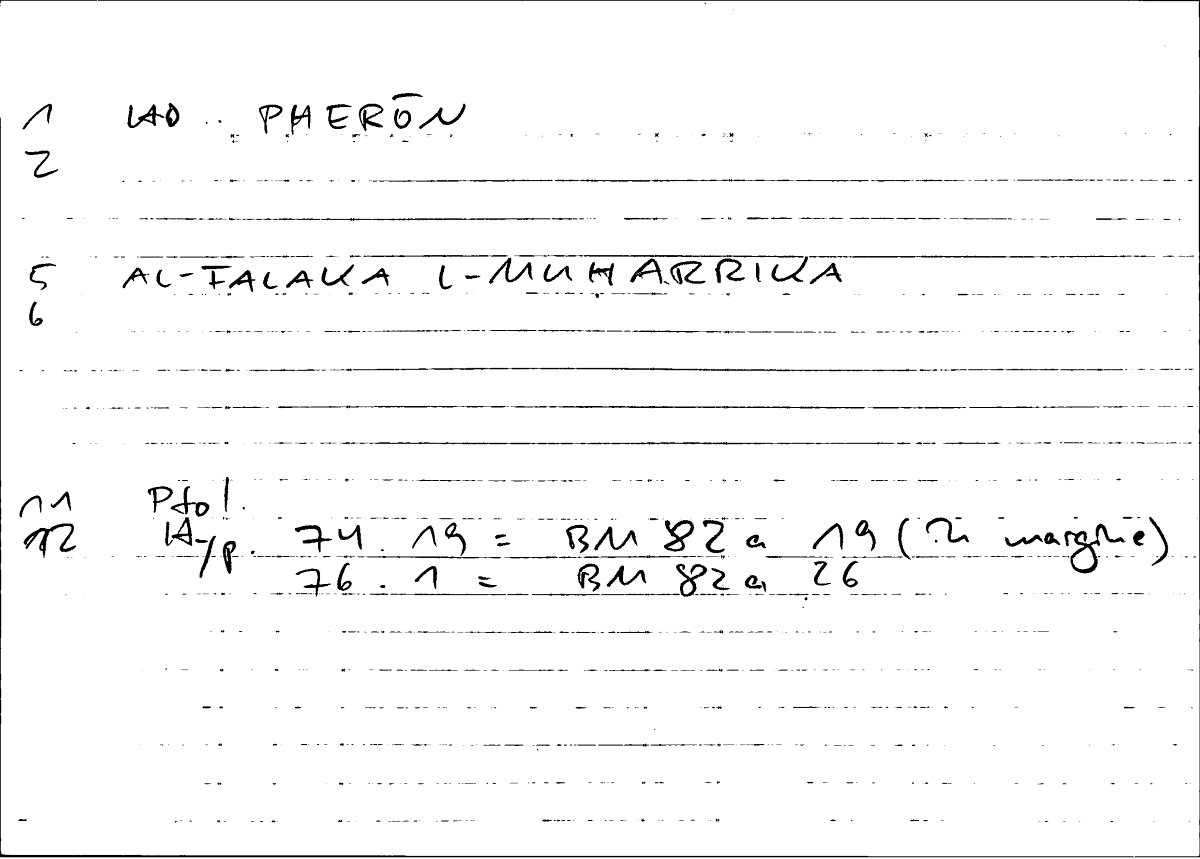 1 HO .. PHERŌN
2
5 AL-FALAKA L-MUHARRIKA
6
11 Ptol.
12 Hyp. 74.19 = BM 82 a 19 (in margine)
76.1 = BM 82 a 26